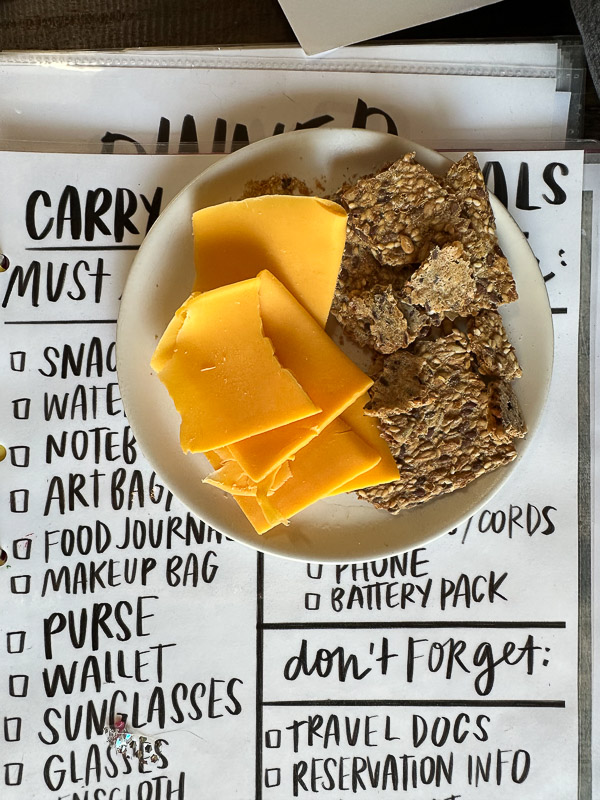 DINNER
CARRY ALS
MUST
SNAC
WATE
NOTEB
ART BAG/
FOOD JOURNA
MAKEUP BAG
PURSE
WALLET
SUNGLASSES
GLASSES
/CORDS
PHONE
BATTERY PACK
don't FORGET:
TRAVEL DOCS
RESERVATION INFO